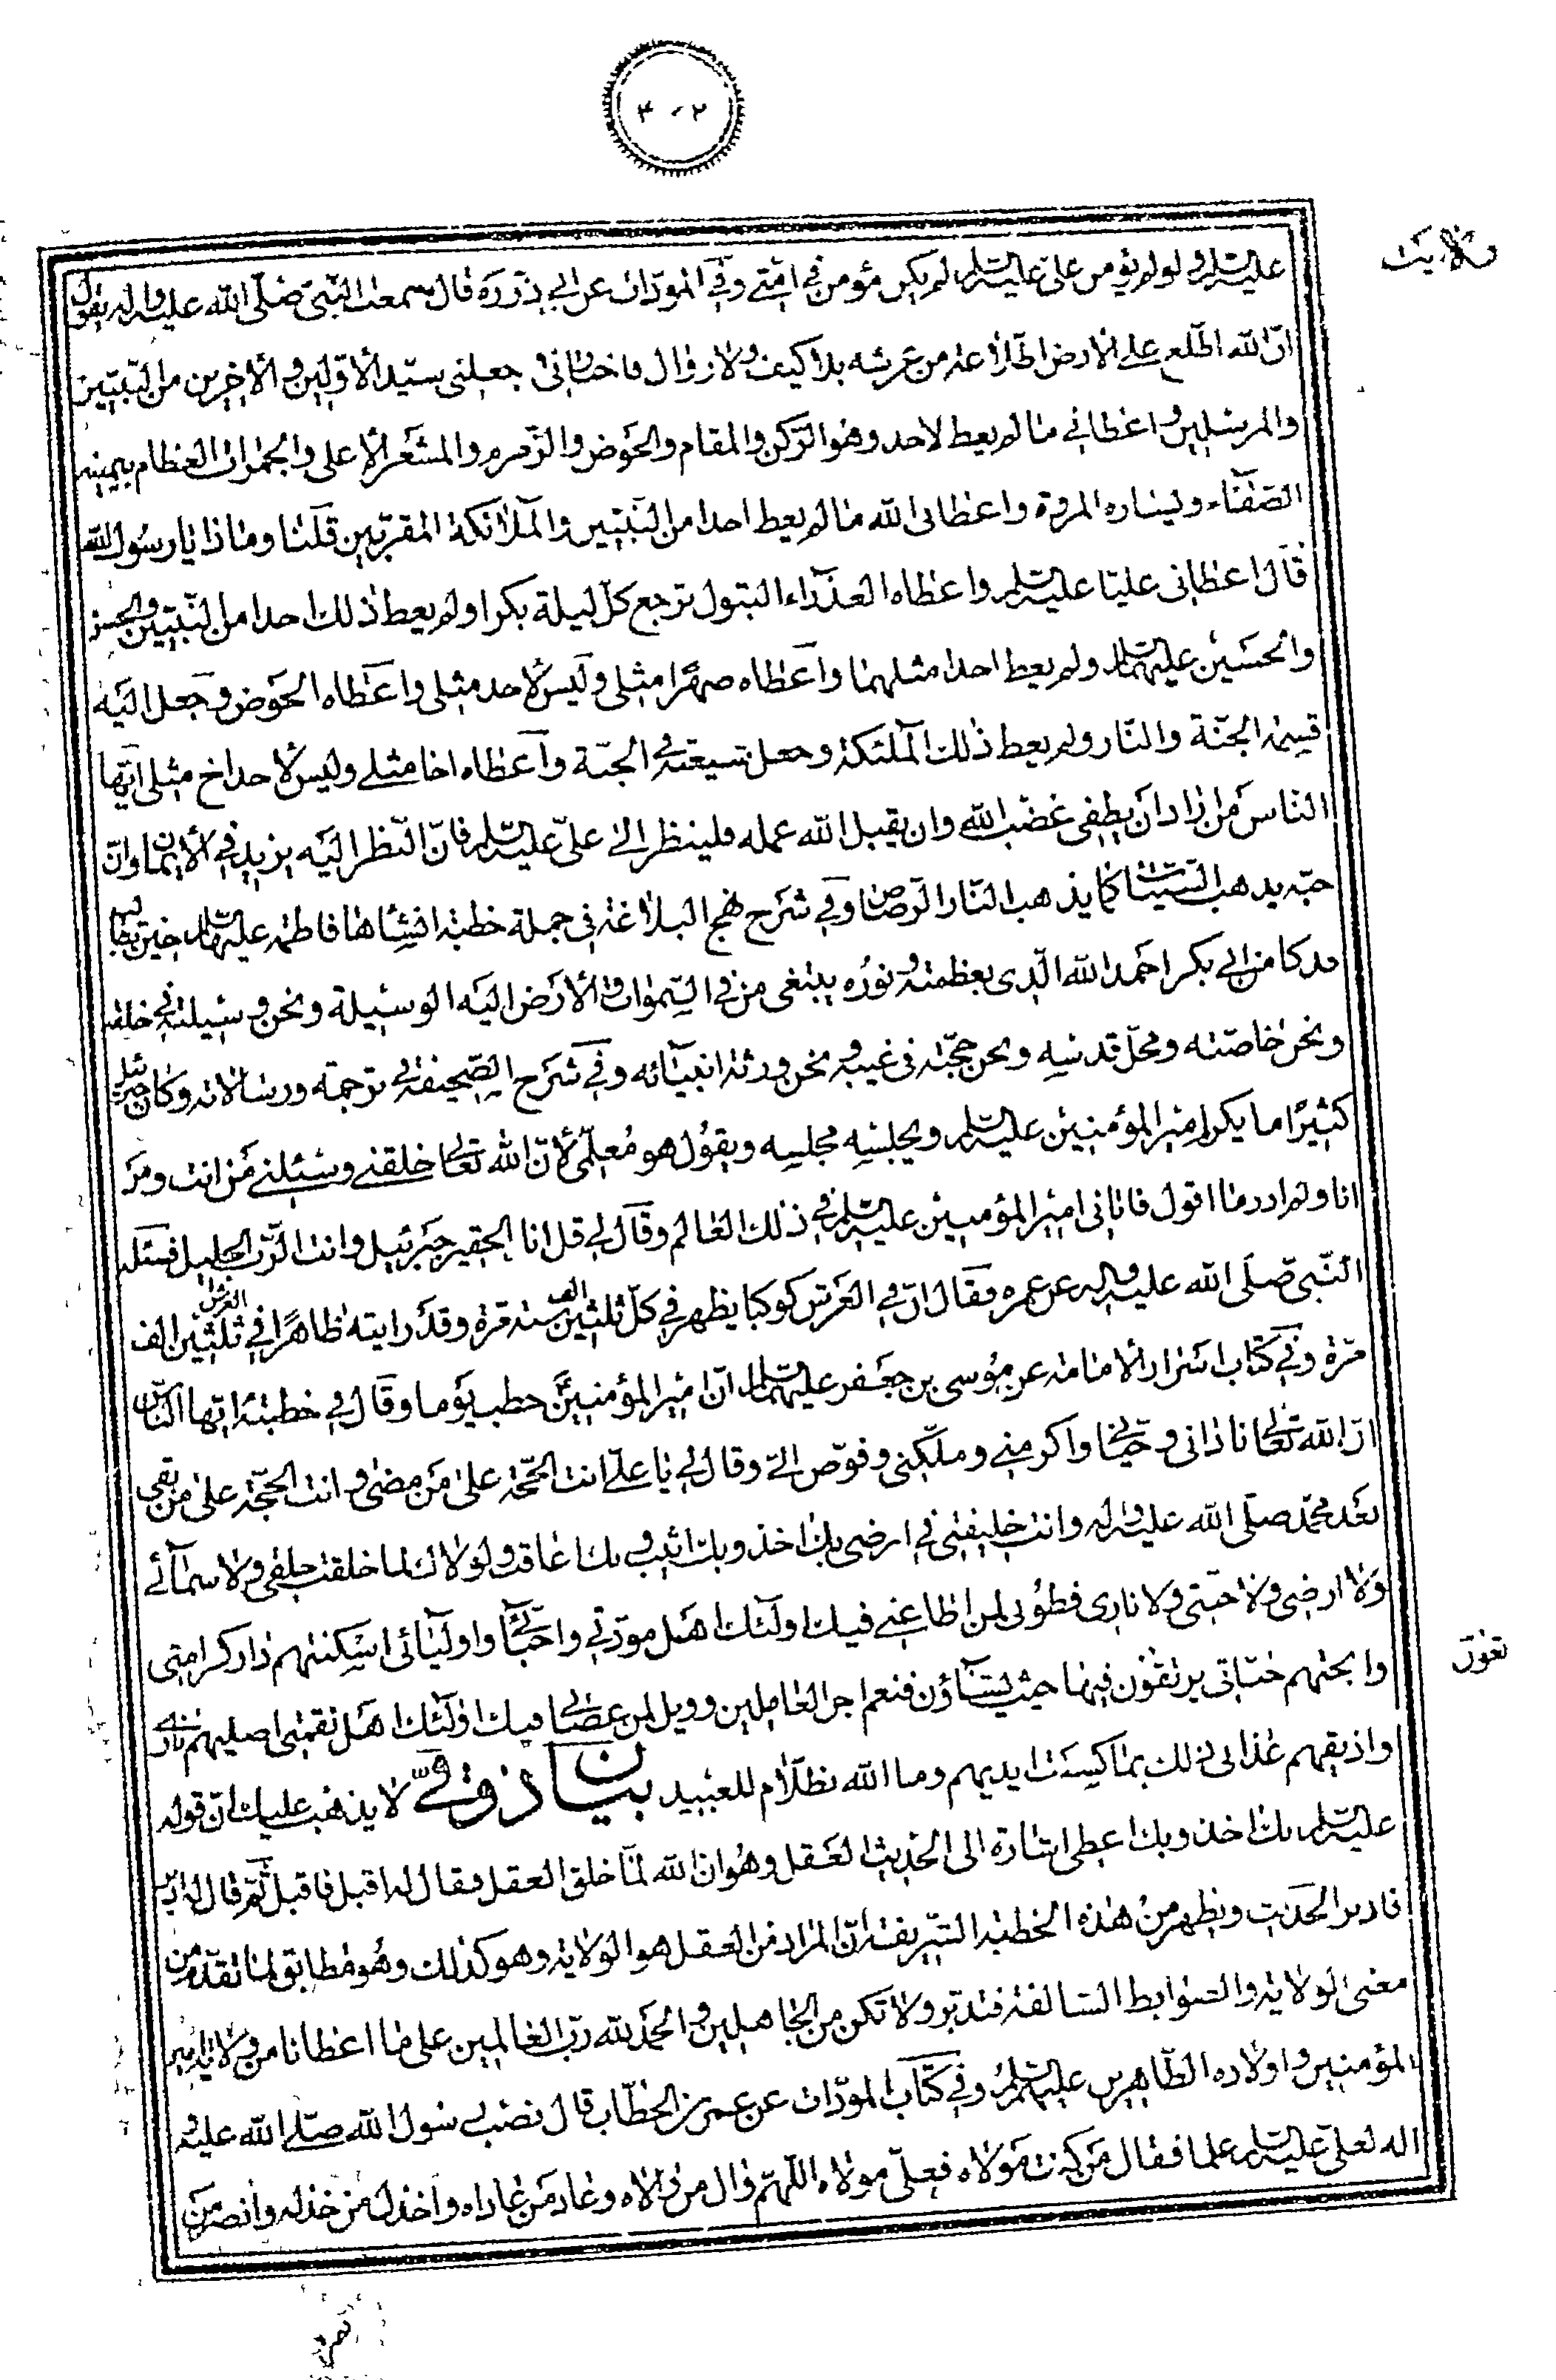 ۴۰۲
ولایت
علیه السلم ولو لم یؤمن علیّ علیه السلم لم یکن مؤمن فی امّتی وفی المودّات عن ابی ذر ره قال سمعت النّبیّ صلّی الله علیه واله یقول
انّ الله اطّلع علی الارض اطّلاعة من عرشه بلا کیف ولا زوال فاختارنی وجعلنی سیّد الاوّلین والاخرین من النّبیّین
والمرسلین واعطانی ما لم یعط لاحد وهو الرّکن والمقام والحوض والزّمزم والمشعر الاعلی والجمرات العظام یمینه
الصّفاء ویساره المروة واعطانی الله ما لم یعط احدا من النّبیّین والملائکة المقرّبین قلنا وماذا یا رسول الله
قال اعطانی علیّا علیه السلم واعطاه العذراء البتول ترجع کلّ لیلة بکرا ولم یعط ذلک احدا من النّبیّین والحسن
والحسین علیهما السلام ولم یعط احدا مثلهما واعطاه صهرًا مثلی ولیس لاحد مثلی واعطاه الحوض وجعل الیه
قسمة الجنّة والنّار ولم یعط ذلک الملئکة وجعل شیعته فی الجنّة واعطاه اخا مثلی ولیس لاحد اخ مثلی ایّها
النّاس من اراد ان یطفی غضب الله وان یقبل الله عمله فلینظر الی علیّ علیه السلم فانّ النّظر الیه یزید فی الایمان وانّ
حبّه یذهب السّیّئات کما یذهب النّار الرّصاص وفی شرح نهج البلاغة فی جملة خطبة انشاها فاطمة علیها السلام حین
فدکا من ابی بکر احمد الله الّذی بعظمته ونوره یبتغی من فی السّموات والارض الیه الوسیلة ونحن وسیلته فی خلقه
ونحن خاصّته ومحلّ قدسه ونحن حجّته فی غیبه ونحن ورثة انبیائه وفی شرح الصّحیفة فی ترجمة ورسالاته وکان جبرئیل
کثیرًا ما یکرّم امیر المؤمنین علیه السلم ویجلسه مجلسه ویقول هو معلّمی لانّ الله تعالی خلقنی وسئلنی من انت ومن
انا ولم ادر ما اقول فاتانی امیر المؤمنین علیه السلم فی ذلک العالم وقال لی قل انا الحقیر جبرئیل وانت الرّب الجلیل فسئله
النّبی صلّی الله علیه واله عن عمره فقال انّ فی العرش کوکبا یظهر فی کلّ ثلثین الف سنة مرّة وقد رایته ظاهرًا فی العرش ثلثین الف
مرّة وفی کتاب اسرار الامامة عن موسی بن جعفر علیهما السلام انّ امیر المؤمنین خطب یوما وقال فی خطبته ایّها النّاس
انّ الله تعالی نادانی وحیّانی واکرمنی وملّکنی وفوّض الیّ وقال لی یا علی انت الحجّة علی من مضی وانت الحجّة علی من بقی
بعد محمّد صلّی الله علیه واله وانت خلیفتی فی ارضی بک اخذ وبک اثیب وبک اعاقب ولولاک لما خلقت خلقی ولا سمائی
ولا ارضی ولا جنّتی ولا ناری فطوبی لمن اطاعنی فیک اولئک اهل مودّتی واحبّائی واولیائی اسکنتهم دار کرامتی
وابحتهم جنّاتی یرتقون فیها حیث یشاؤن فنعم اجر العاملین وویل لمن عصانی فیک اولئک اهل نقمتی اصلیهم ناری
واذیقهم عذابی ذلک بما کسبت ایدیهم وما الله بظلّام للعبید بیان ذوقیّ لا یذهب علیک انّ قوله
علیه السلم بک اخذ وبک اعطی اشارة الی الحدیث العقل وهو انّ الله لمّا خلق العقل فقال له اقبل فاقبل ثمّ قال له ادبر
فادبر الحدیث ویظهر من هذه الخطبة الشّریفة انّ المراد من العقل هو الولایة وهو کذلک وهو مطابق لما تقدّم من
معنی الولایة والضوابط السّالفة فتدبّر ولا تکن من الجاهلین والحمد لله ربّ العالمین علی ما اعطانا من ولایة امیر
المؤمنین واولاده الطّاهرین علیهم السلم وفی کتاب المودّات عن عمر بن الخطّاب قال نصب رسول الله صلّی الله علیه
واله لعلیّ علیه السلم علما فقال من کنت مولاه فعلیّ مولاه اللّهمّ وال من والاه وعاد من عاداه واخذل من خذله وانصر من